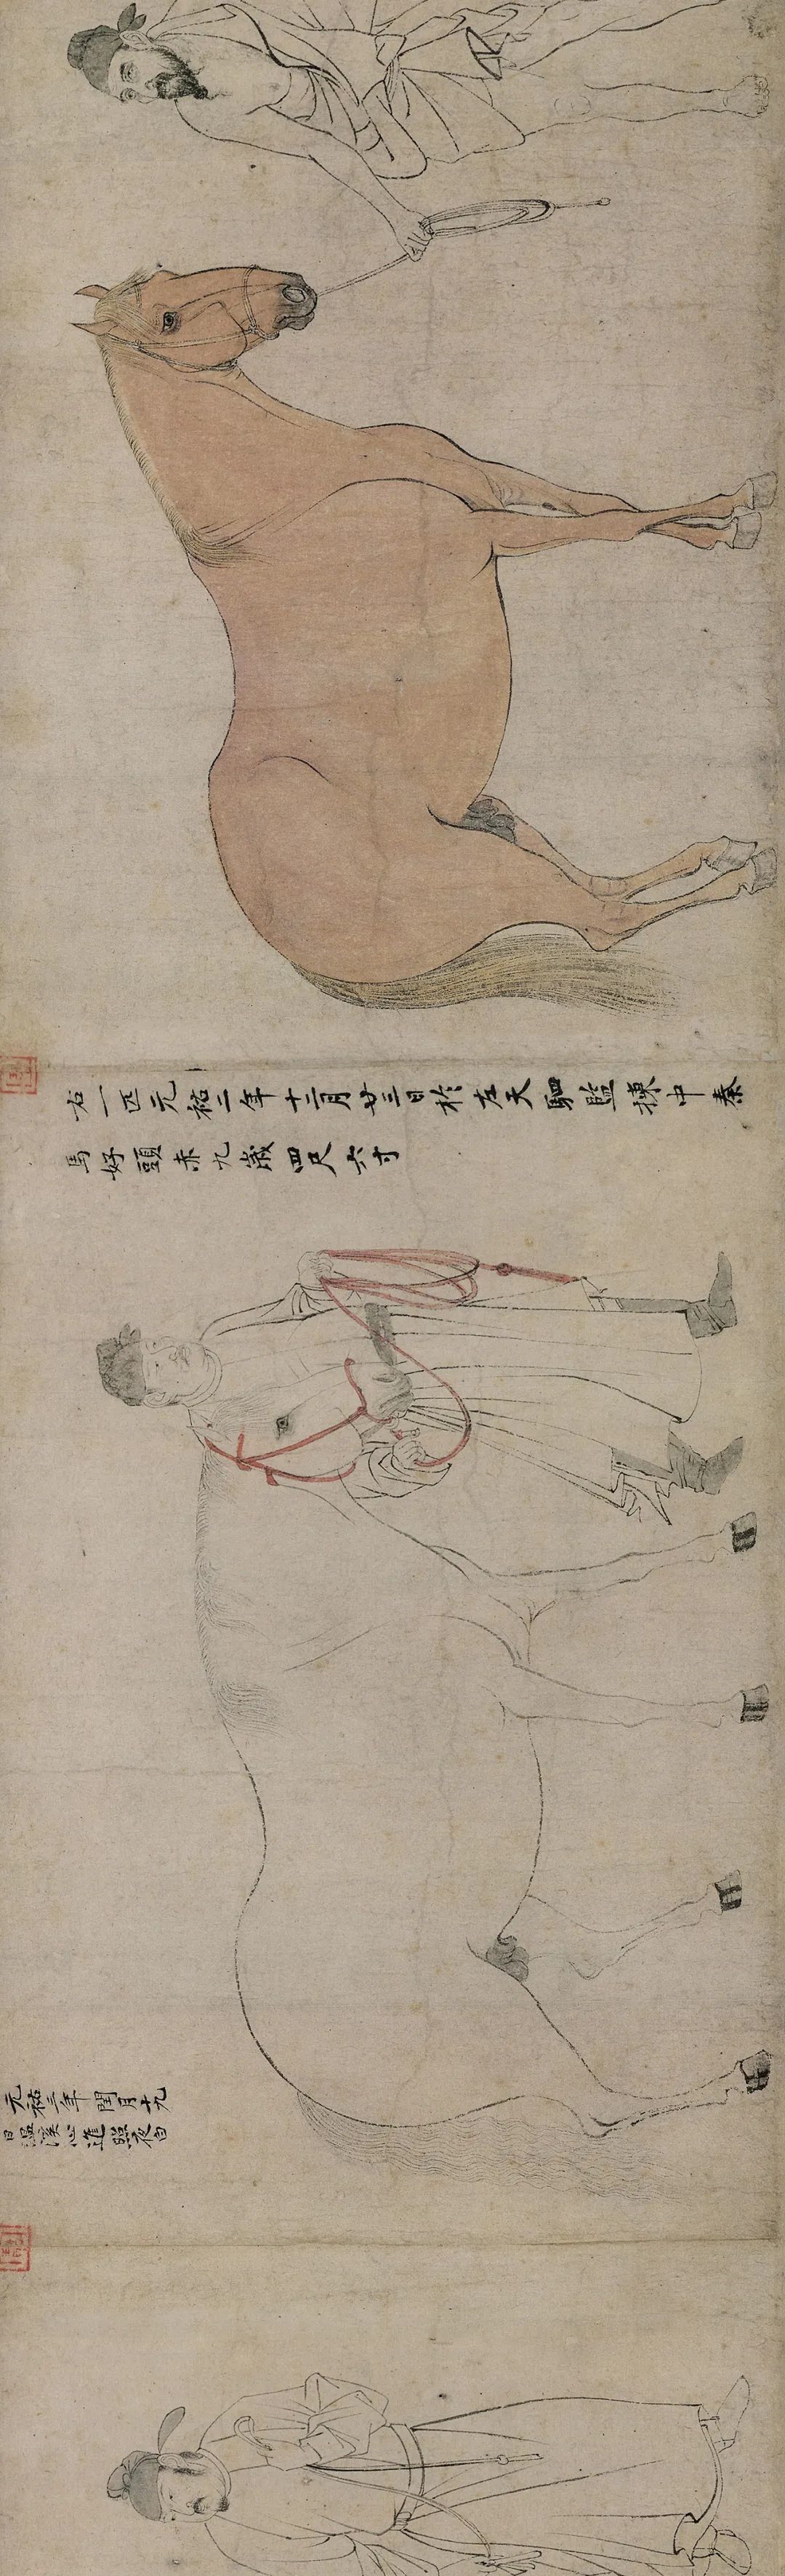 右一匹元祐二年十二月廿三日於左天駟監揀中秦
馬好頭赤九歲四尺六寸
元祐三年閏月十九
日溫溪心進照夜白